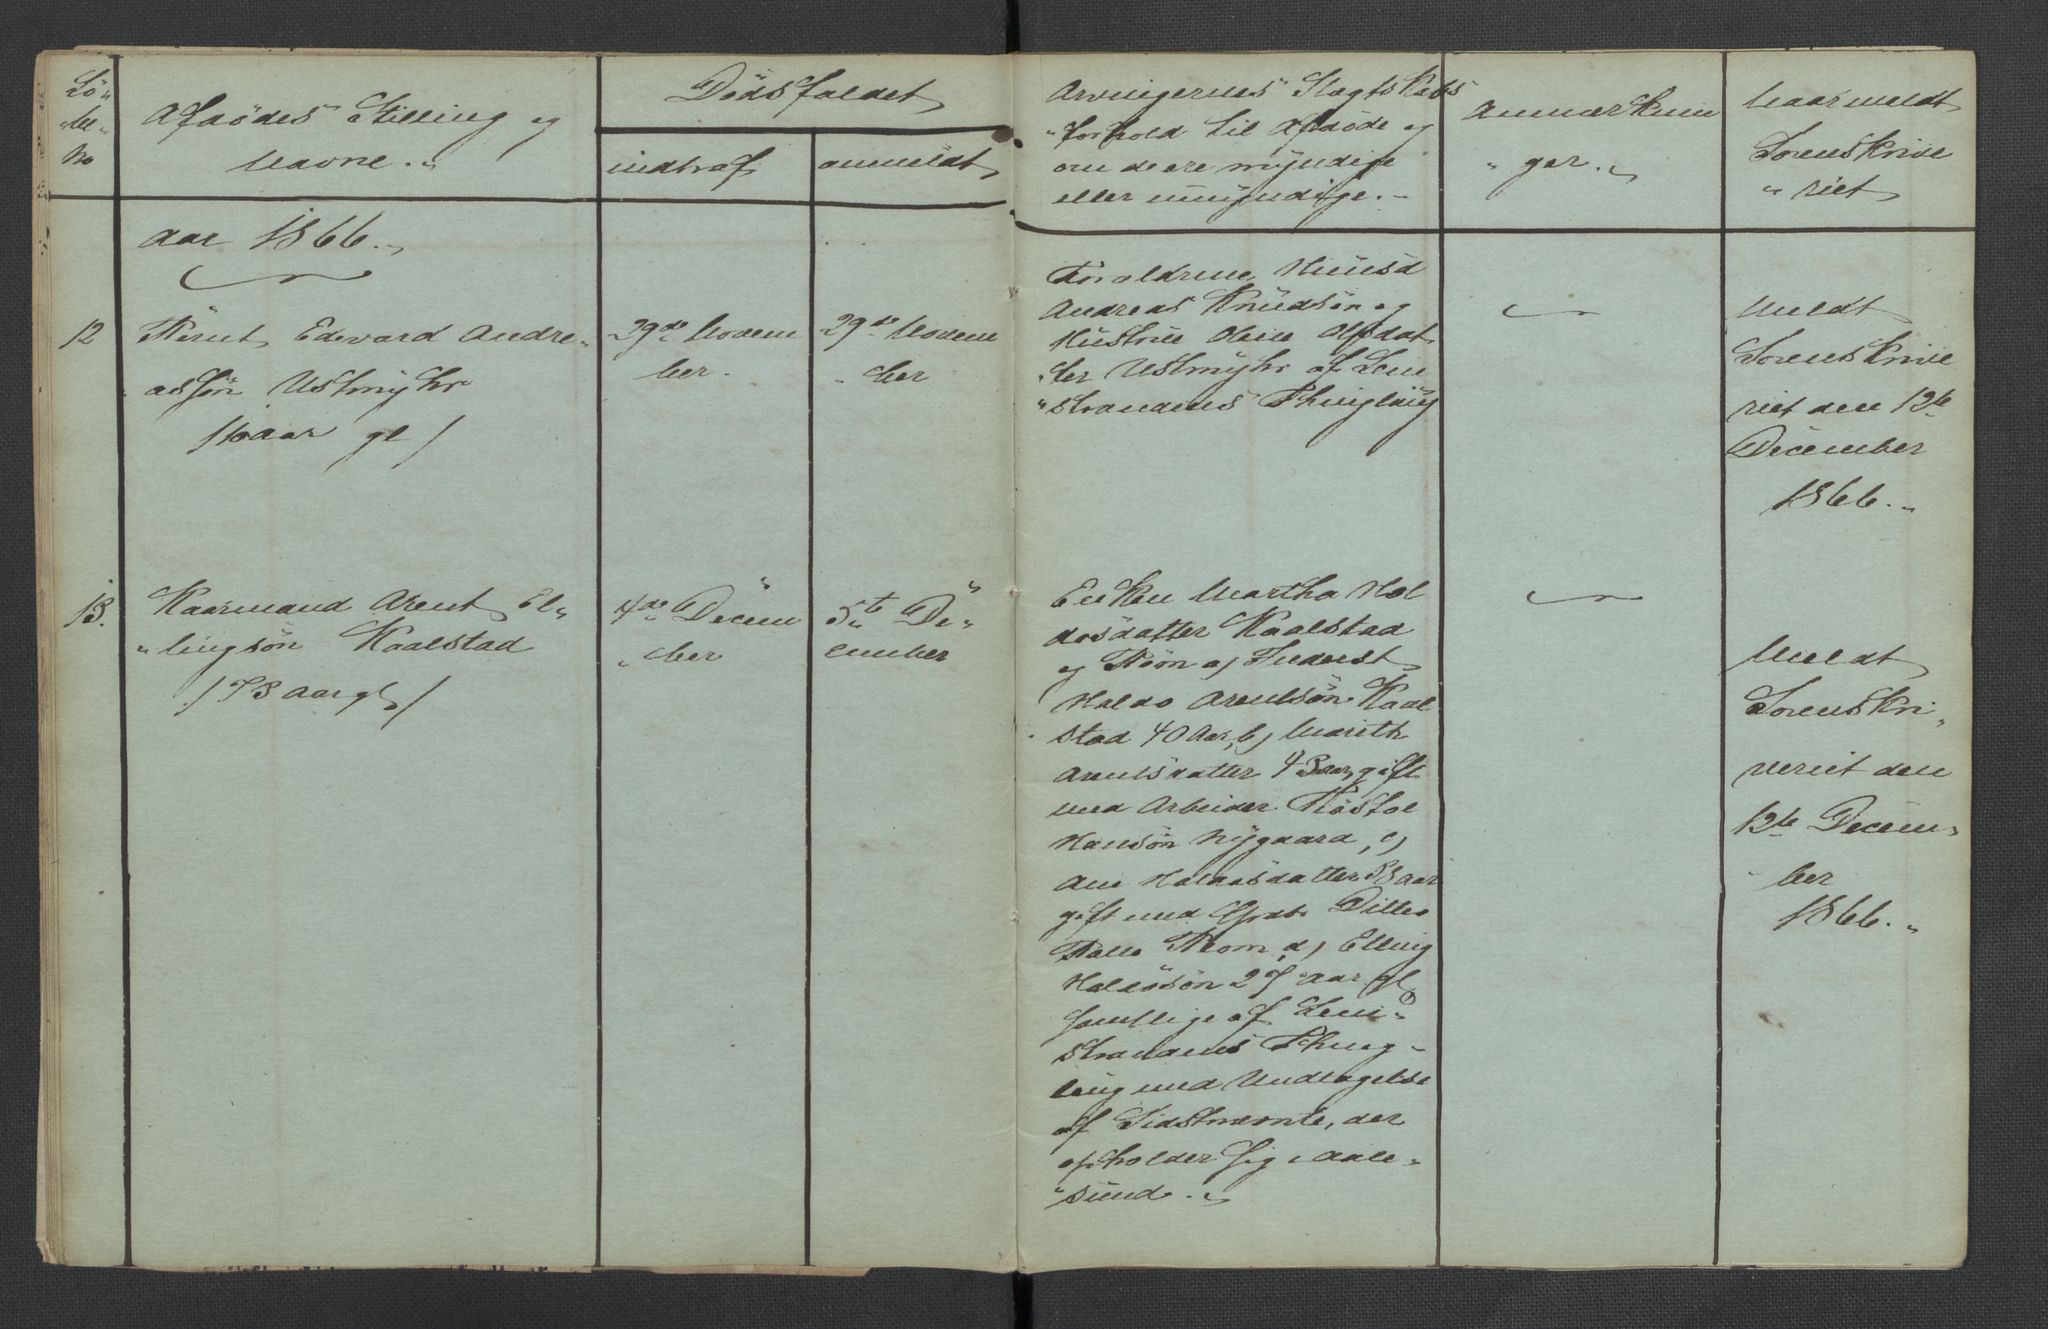 Lö-
be-
No
Afdödes Stilling og
Navne.
Dödsfaldet
indtraf
anmeldt
Arvingernes Slægtskabs
forhold til Afdöde og
om de ere myndige
eller umyndige.-
Anmærknin
ger.
Naar meldt
Sorenskrive
riet
Aar 1866.
12
Bernt Edevard Andre-
assön Ustmyhr
/ Aar gl /
29de Novem
ber.
29de Novem
ber
Foraldrene Huusd
Andreas Knudsön og
Hustrue Oline Olsdat
ter Ustmyhr af Len
strandens Thinglaug
Meldt
Sorenskrive
riet den 12te
December
1866.
13.
Kaarmand Arent El-
lingsön Kaalstad
/ 73 aar gl /
4de Decem
ber
5te De-
cember
Enken Martha Hal
dosdatter Kaalstad
og Börn a) Inderst
Haldo Arentsön Kaal
stad 40 Aar, b) Marith
Arentsdatter 43 aar, gift
med Arbeider Tostol
Hansön Nygaard, c)
Ane Haldosdatter 33 aar
gift med Gdbr. Ditlev
Rom, d) Elling
Haldosön 27 Aar gl
samtlige af Len-
strandens Thing-
laug med Undtagelse
af Sidstnævnte, der
opholder sig i Aale-
sund.
Meldt
Sorenskri-
veriet den
12te Decem-
ber
1866.